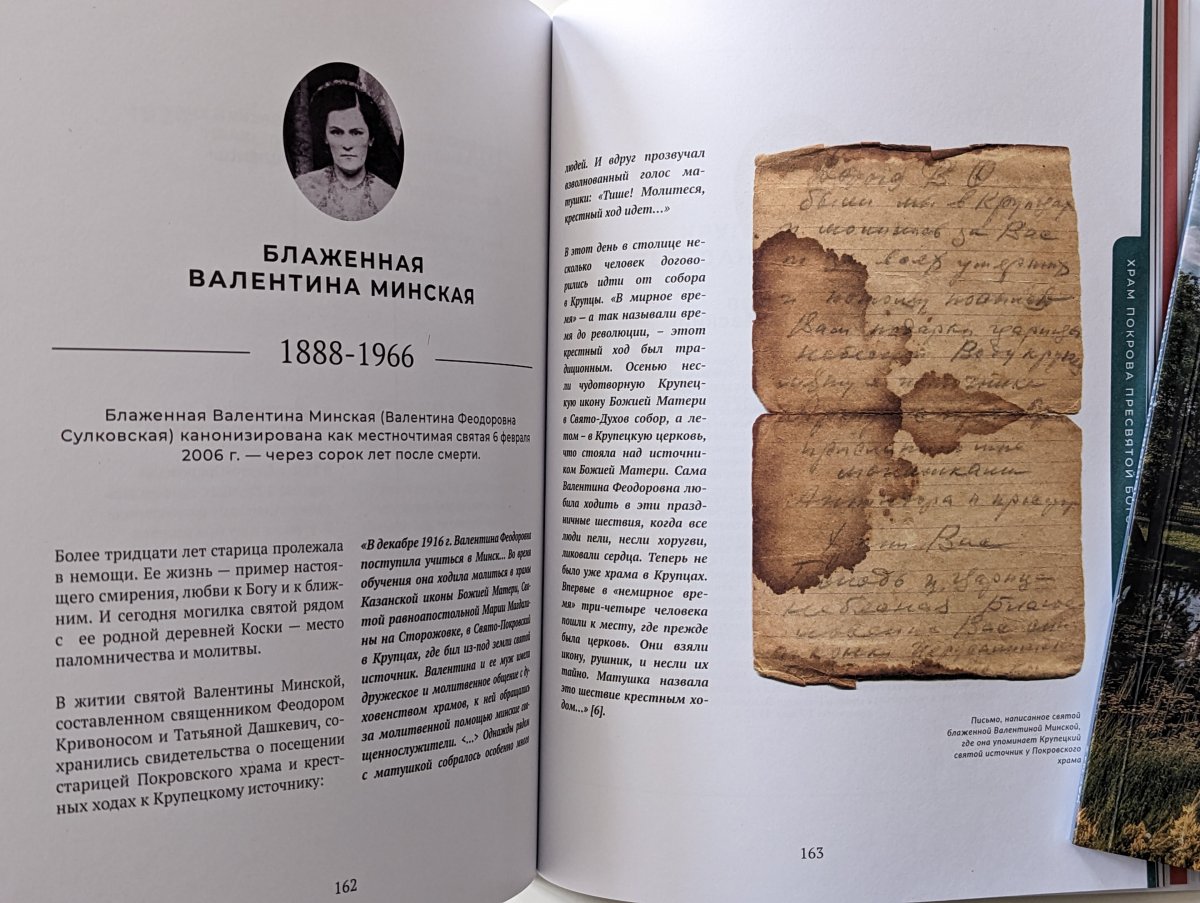 БЛАЖЕННАЯ
ВАЛЕНТИНА МИНСКАЯ
1888-1966
Блаженная Валентина Минская (Валентина Феодоровна
Сулковская) канонизирована как местночтимая святая 6 февраля
2006 г. — через сорок лет после смерти.
Более тридцати лет старица пролежала
в немощи. Ее жизнь — пример настоя-
щего смирения, любви к Богу и к ближ-
ним. И сегодня могилка святой рядом
с ее родной деревней Коски — место
паломничества и молитвы.
В житии святой Валентины Минской,
составленном священником Феодором
Кривоносом и Татьяной Дашкевич, со-
хранились свидетельства о посещении
старицей Покровского храма и крест-
ных ходах к Крупецкому источнику:
«В декабре 1916 г. Валентина Феодоровна
поступила учиться в Минск... Во время
обучения она ходила молиться в храмы
Казанской иконы Божией Матери, Свя-
той равноапостольной Марии Магдали-
ны на Сторожовке, в Свято-Покровский
в Крупцах, где был из-под земли святой
источник. Валентина и ее муж имели
дружеское и молитвенное общение с ду-
ховенством храмов, к ней обращались
за молитвенной помощью минские свя-
щеннослужители. <...> Однажды рядом
с матушкой собралось особенно много
162
людей. И вдруг прозвучал
взволнованный голос ма-
тушки: «Тише! Молитеся,
крестный ход идет...»
В этот день в столице не-
сколько человек догово-
рились идти от собора
в Крупцы. «В мирное вре-
мя» – а так называли вре-
мя до революции, – этот
крестный ход был тра-
диционным. Осенью нес-
ли чудотворную Крупец-
кую икону Божией Матери
в Свято-Духов собор, а ле-
том – в Крупецкую церковь,
что стояла над источни-
ком Божией Матери. Сама
Валентина Феодоровна лю-
била ходить в эти празд-
ничные шествия, когда все
люди пели, несли хоругви,
ликовали сердца. Теперь не
было уже храма в Крупцах.
Впервые в «немирное вре-
мя» три-четыре человека
пошли к месту, где прежде
была церковь. Они взяли
икону, рушник, и несли их
тайно. Матушка назвала
это шествие крестным хо-
дом...» [6].
были мы в Крупцах
и молились за Вас
Вам подарки царицы
небесной Воду
Вас
небесная
Письмо, написанное святой
блаженной Валентиной Минской,
где она упоминает Крупецкий
святой источник у Покровского
храма
163
ХРАМ ПОКРОВА ПРЕСВЯТОЙ